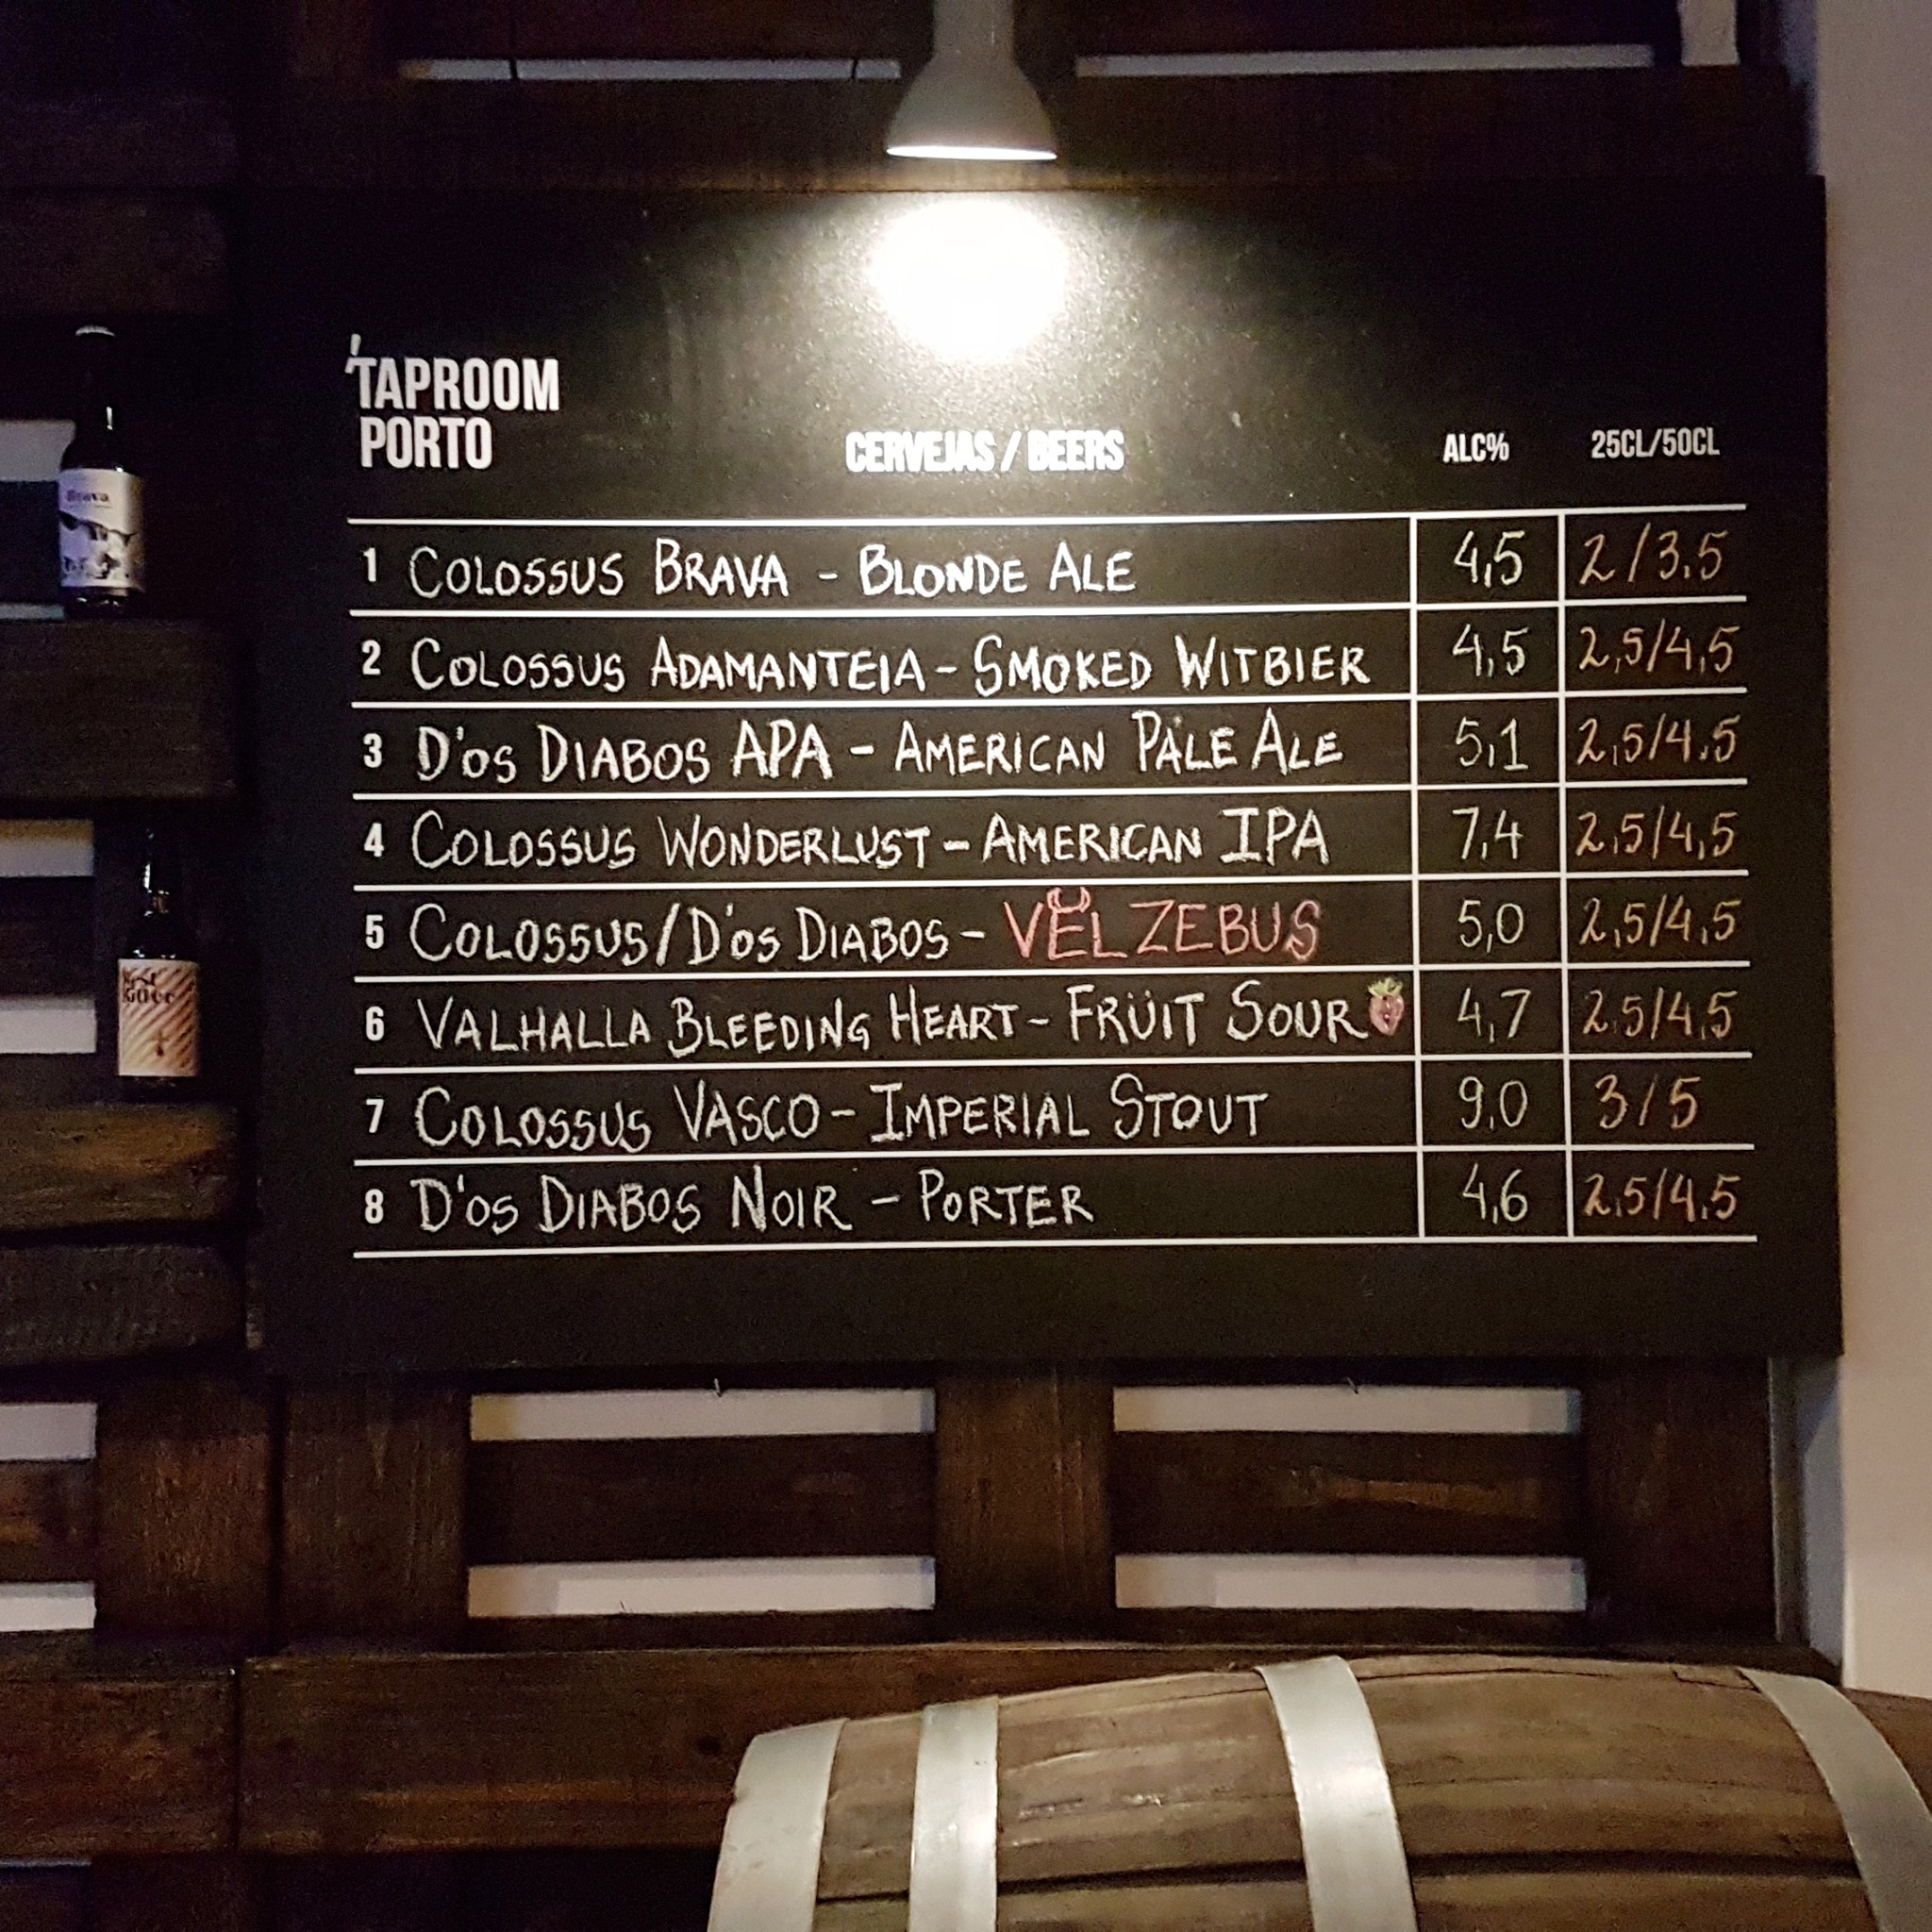 'TAPROOM
PORTO
CERVEJAS / BEERS ALC% 25CL/50CL
1 COLOSSUS BRAVA - BLONDE ALE 4,5 2/3.5
2 COLOSSUS ADAMANTEIA - SMOKED WITBIER 4,5 2,5/4,5
3 D'OS DIABOS APA - AMERICAN PALE ALE 5,1 2,5/4.5
4 COLOSSUS WONDERLUST - AMERICAN IPA 7,4 2,5/4,5
5 COLOSSUS/D'OS DIABOS - VELZEBUS 5,0 2,5/4,5
6 VALHALLA BLEEDING HEART - FRÜIT SOUR 4,7 2.5/4,5
7 COLOSSUS VASCO - IMPERIAL STOUT 9,0 3/5
8 D'OS DIABOS NOIR - PORTER 4,6 2,5/4.5
Brava